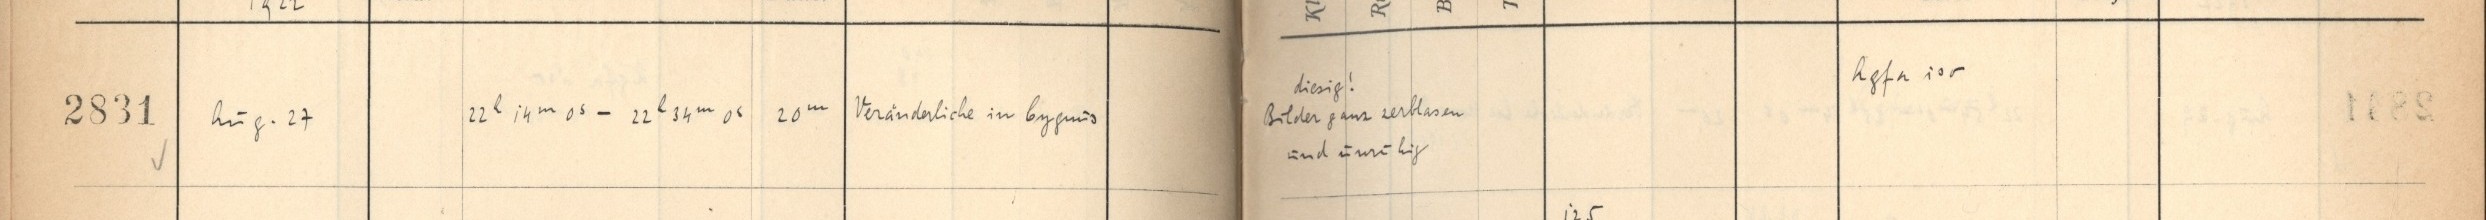 1922
2831 Aug. 27 22h 14m 0s – 22h 34m 0s 20m Veränderliche in Cygnus
diesig!
Bilder ganz zerblasen
und unruhig
Agfa iso
125